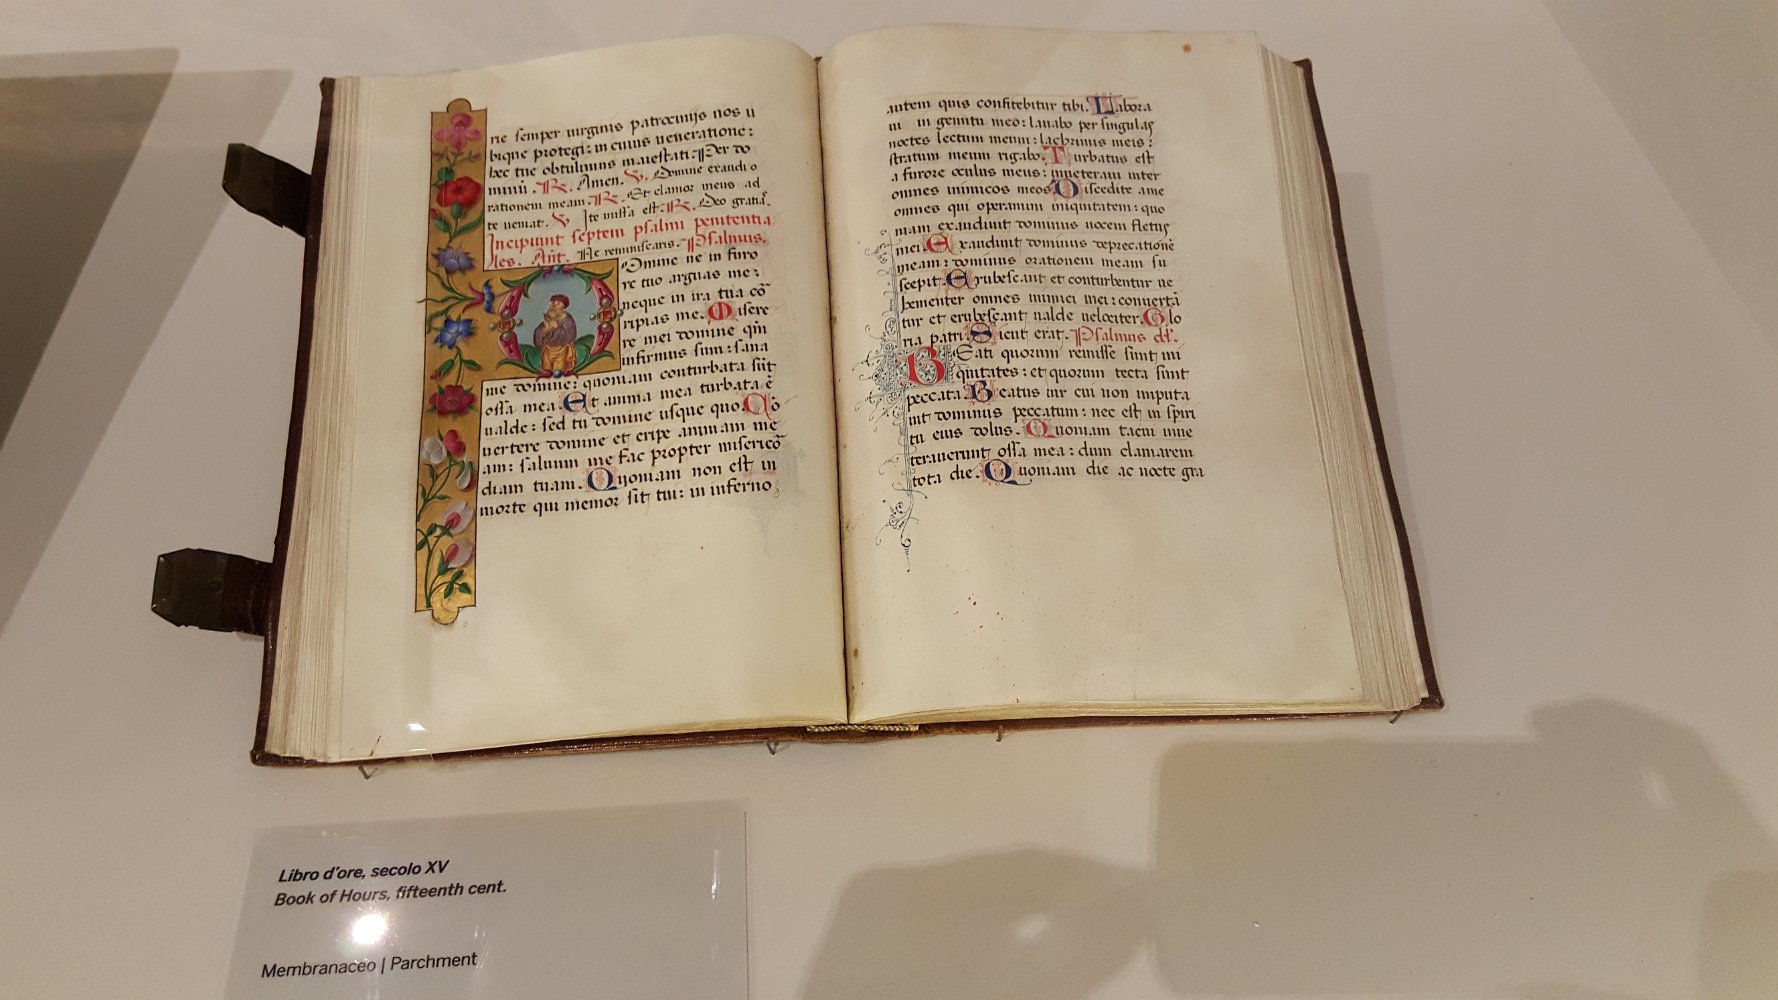 rie semper uirginis patrocinijs nos u
bique protegi: in cuius ueneratione:
hec tue obtulimus maiestati. Per do
minū. R. Amen. V. Domine exaudi o
rationem meam. R. Et clamor meus ad
te ueniat. V. Ite missa est. R. Deo gratias.
Incipiunt septem psalmi penitentia
les. Añt. Ne reminiscaris. Psalmus.
Domine ne in furo
re tuo arguas me:
neque in ira tua cō
ripias me. Misere
re mei domine qm̄
infirmus sum: sana
me domine: quoniam conturbata sūt
ossa mea. Et anima mea turbata ē
ualde: sed tu domine usque quo. Cō
uertere domine et eripe animam me
am: saluum me fac propter misericō
diam tuam. Quoniam non est in
morte qui memor sit tui: in inferno
autem quis confitebitur tibi. Labora
ui in gemitu meo: lauabo per singulas
noctes lectum meum: lachrimis meis:
stratum meum rigabo. Turbatus est
a furore oculus meus: inueteraui inter
omnes inimicos meos. Discedite a me
omnes qui operamini iniquitatem: quo
niam exaudiuit dominus uocem fletus
mei. Exaudiuit dominus deprecationē
meam: dominus orationem meam su
scepit. Erubescant et conturbentur ue
hementer omnes inimici mei: conuertā
tur et erubescant ualde uelociter. Glo
ria patri. Sicut erat. Psalmus dd.
Beati quorum remisse sunt ini
quitates: et quorum tecta sunt
peccata. Beatus uir cui non imputa
uit dominus peccatum: nec est in spiri
tu eius dolus. Quoniam tacui inue
terauerunt ossa mea: dum clamarem
tota die. Quoniam die ac nocte gra
Libro d'ore, secolo XV
Book of Hours, fifteenth cent.
Membranaceo | Parchment